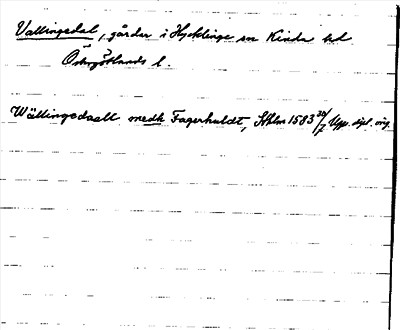 Vallingedal, gårdar i Hycklinge sn Kinda hd
Östergötlands l.
Wällingedaall medh Fagerhuldt, Sthlm 1583 20/7 Upps. dipl. orig.